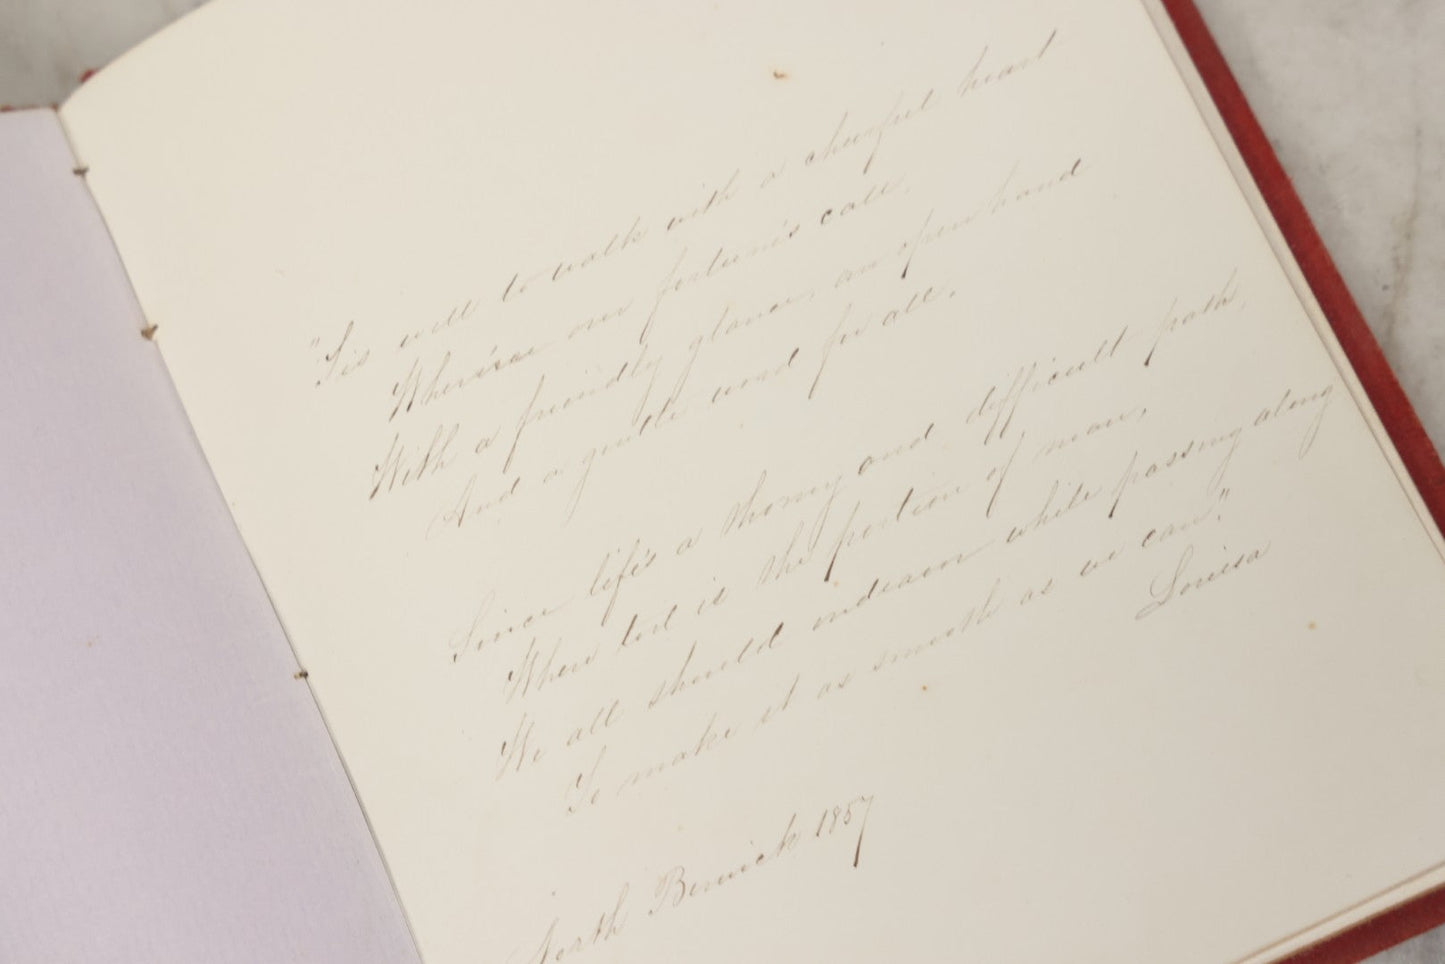 "Tis well to walk with a cheerful heart
Where'er our fortune's call,
With a friendly glance, an open hand
And a gentle word for all.
Since life's a thorny and difficult path,
When toil is the portion of man,
We all should endeavor while passing along
To make it as smooth as we can."
Louisa
North Berwick 1857